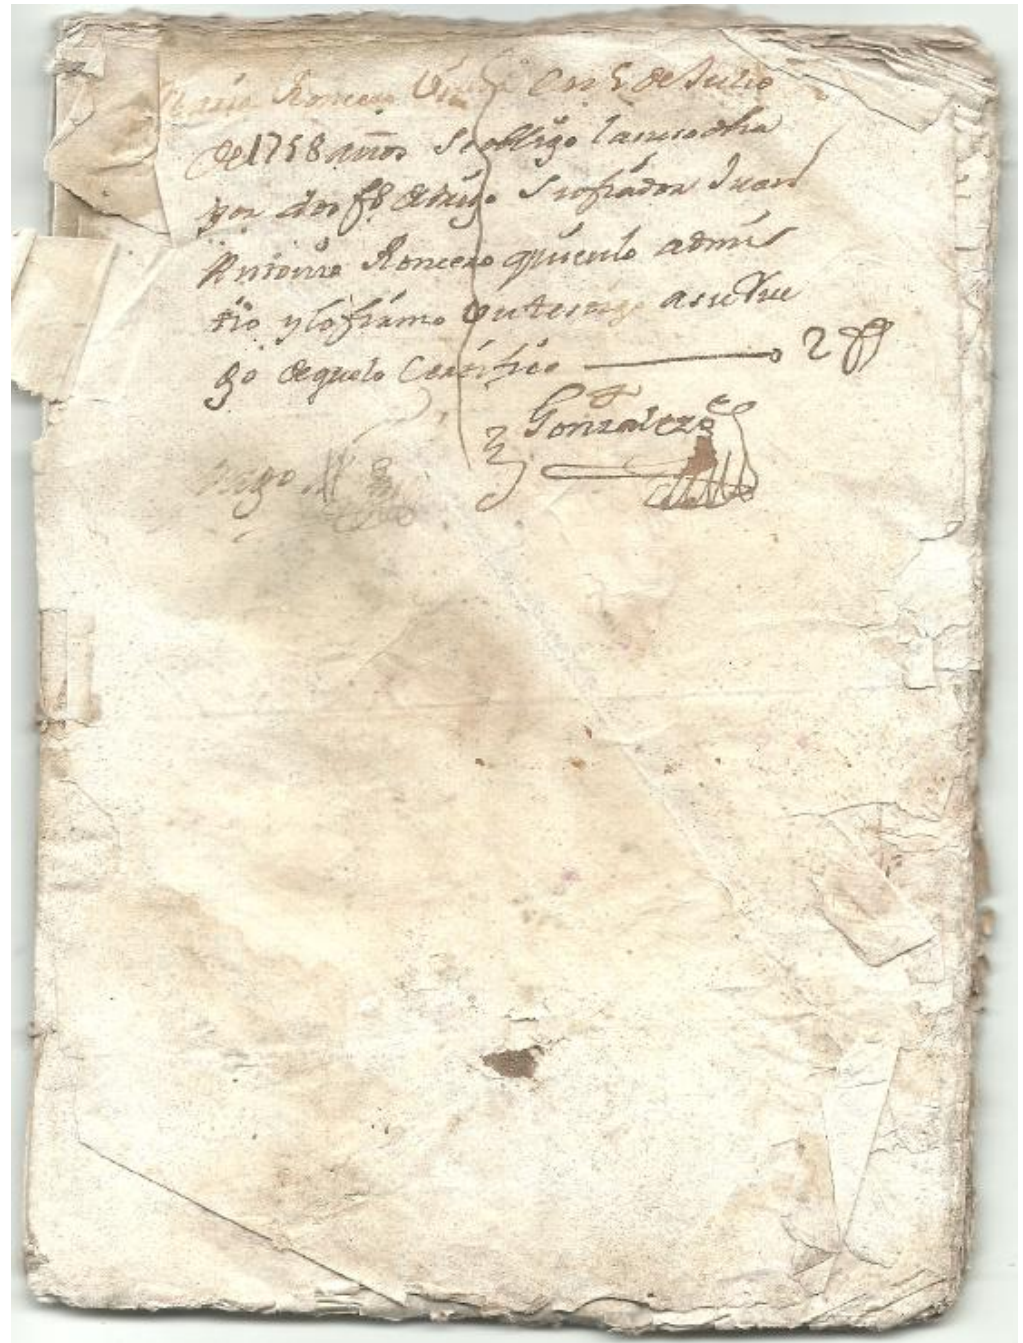 Maria Roncero en 5 de Julio
de 1758 años Se obligo la susodha
por dos fs de trigo Su fiador Juan
Antonio Roncero quien lo admi
tio y lo firmo un testigo a su Rue
go de que lo Certifico 2 fs
Gonzalez